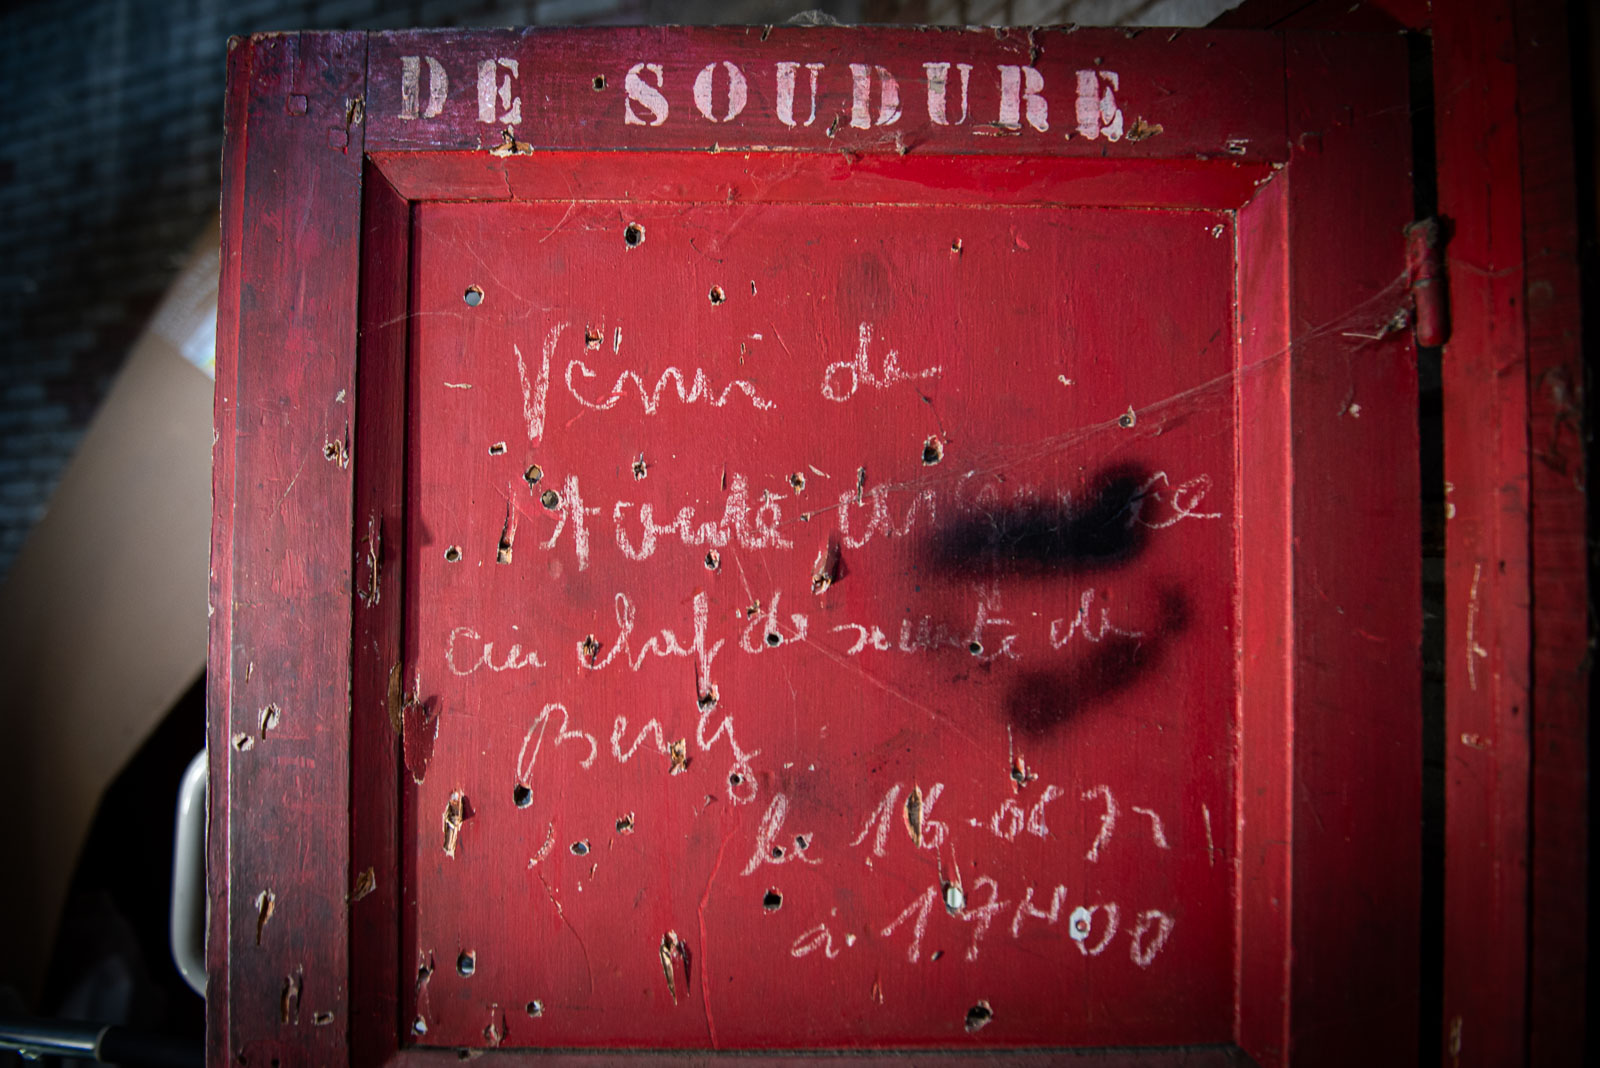 DE SOUDURE
Venu de
toute
au chef de de
Berg
le 16-06 72
à 17H00